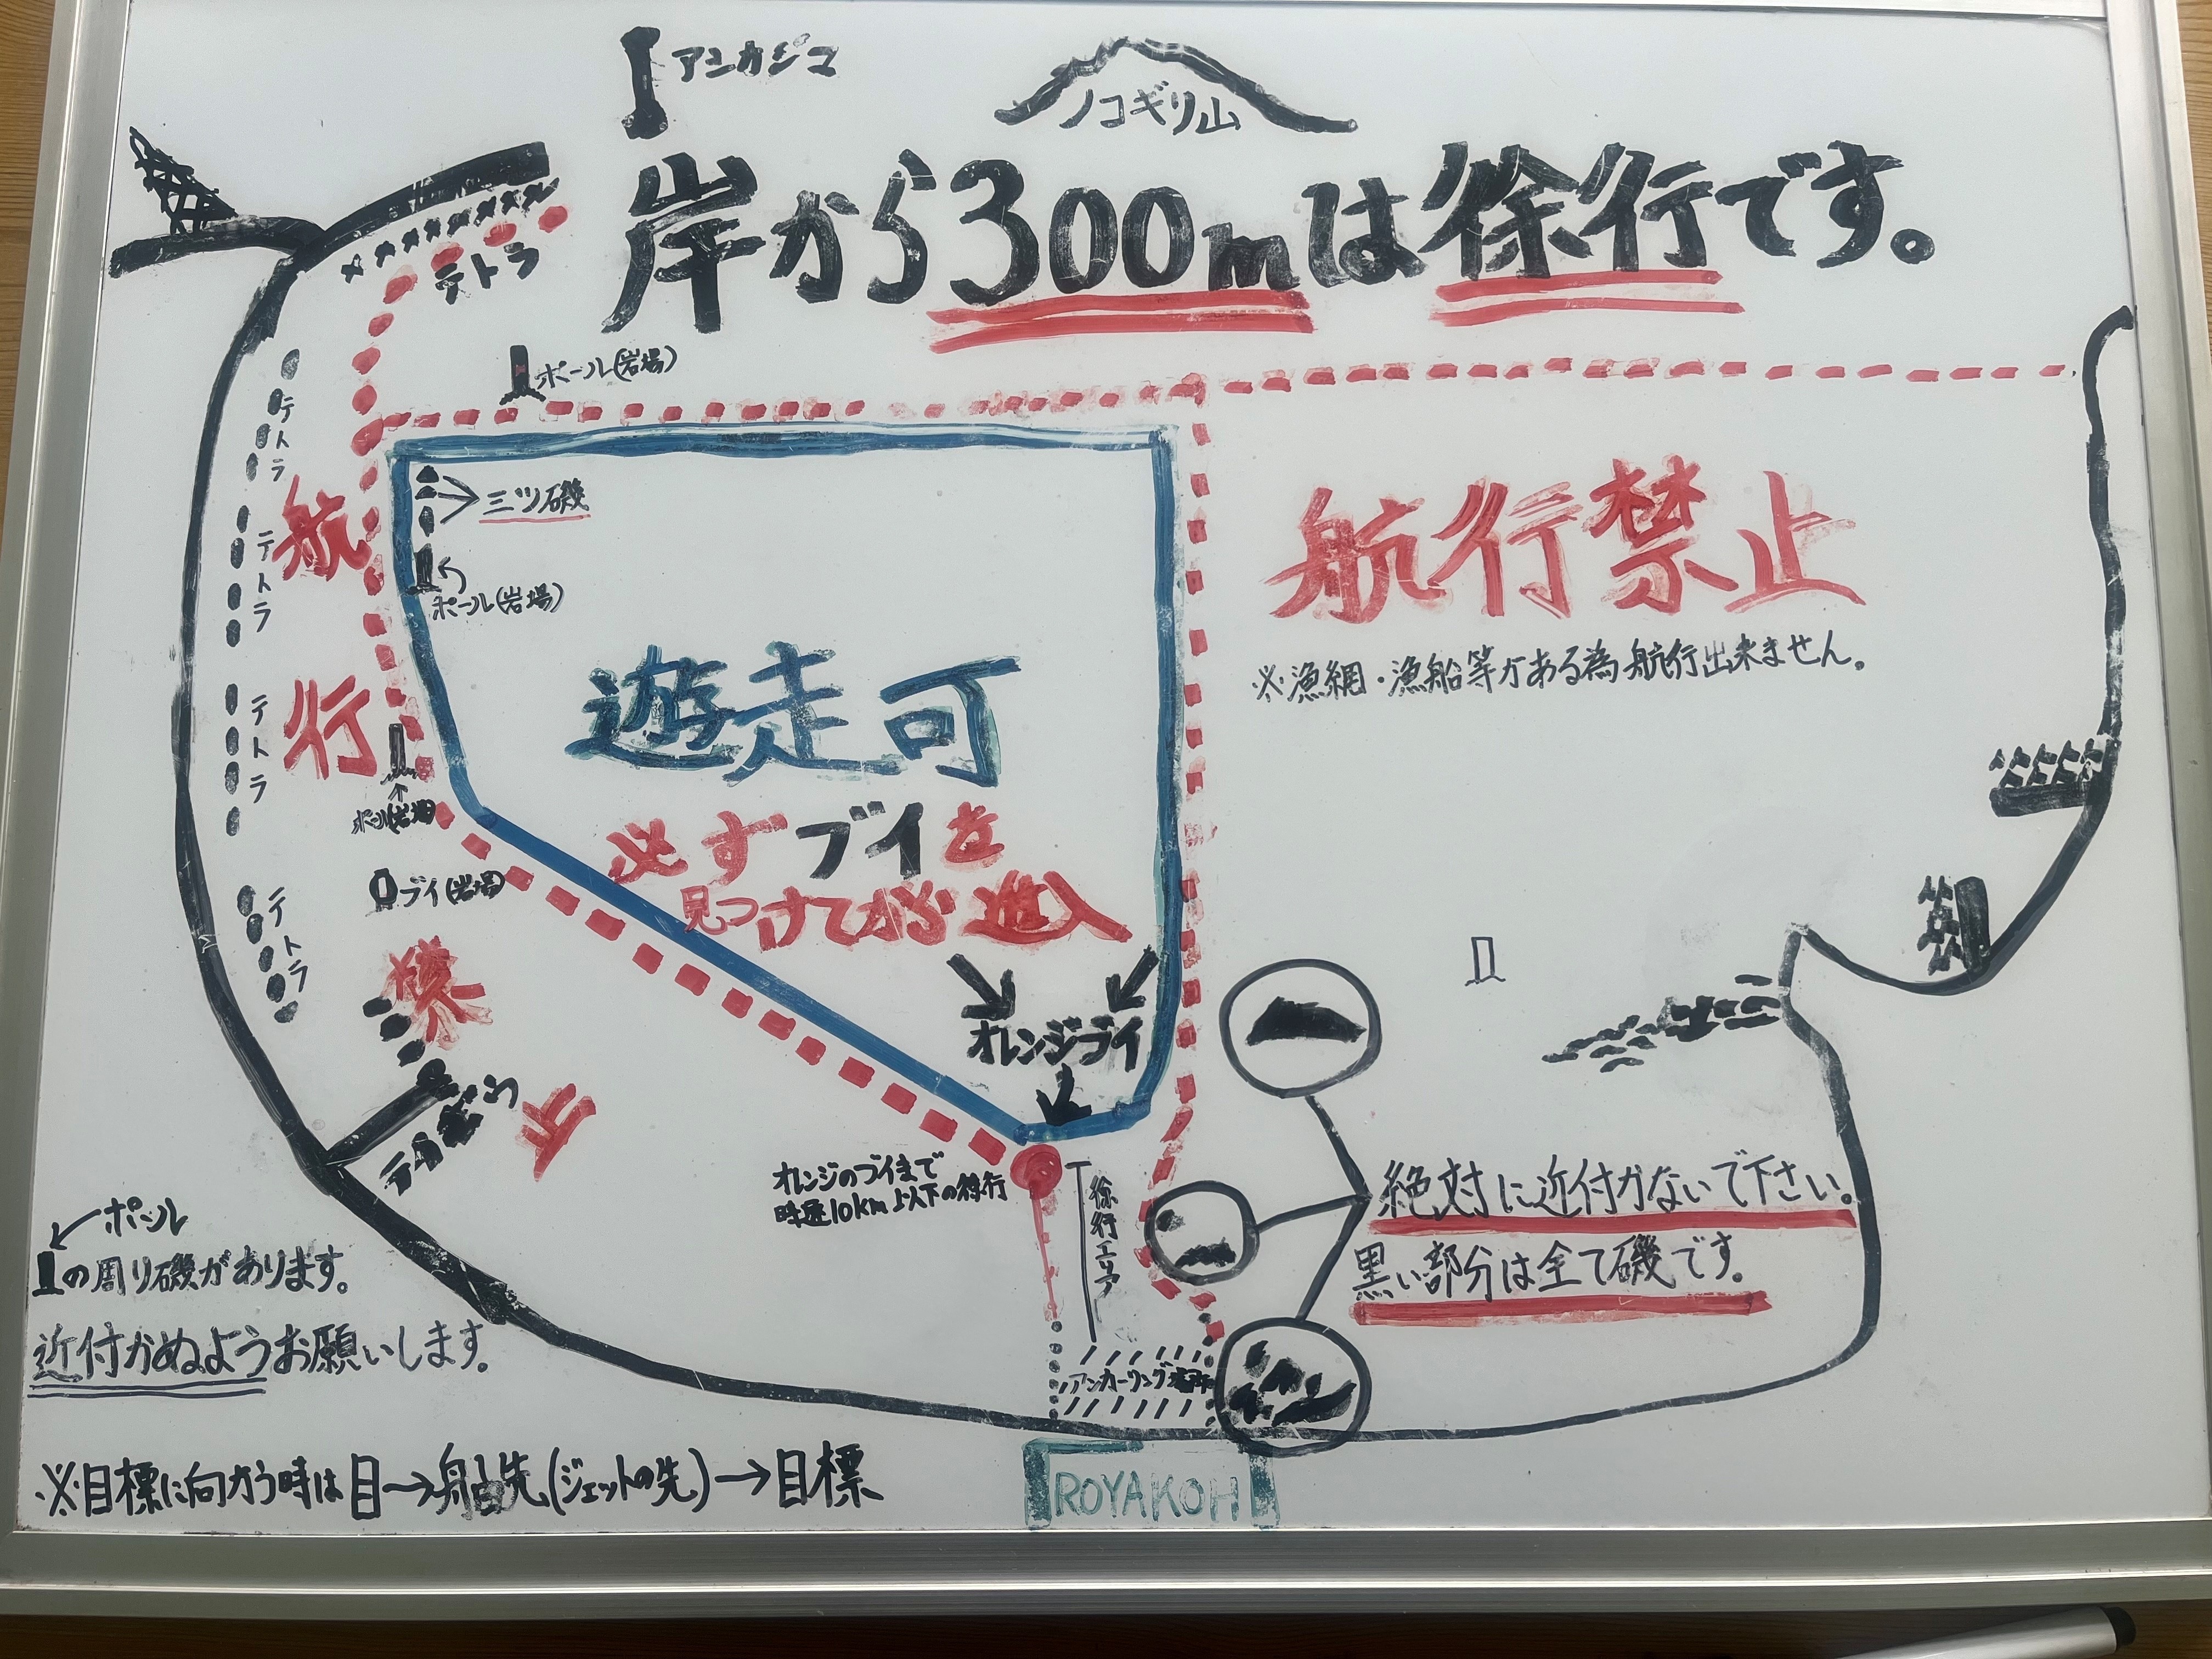 アシカジマ
ノコギリ山
岸から300mは徐行です。
テトラ
ポール(岩場)
テトラ
三ツ磯
ポール(岩場)
テトラ
航行禁止
航行禁止
※漁網・漁船等がある為航行出来ません。
遊走可
テトラ
ポール(岩場)
必ずブイを
見つけてから進入
ブイ(岩場)
テトラ
オレンジブイ
テトラ
オレンジのブイまで
時速10km以下の徐行
徐行エリア
絶対に近付かないで下さい。
黒い部分は全て磯です。
ポール
の周り磯があります。
近付かぬようお願いします。
アンカーリング場所
※目標に向かう時は目→船先(ジェットの先)→目標
ROYAKOH